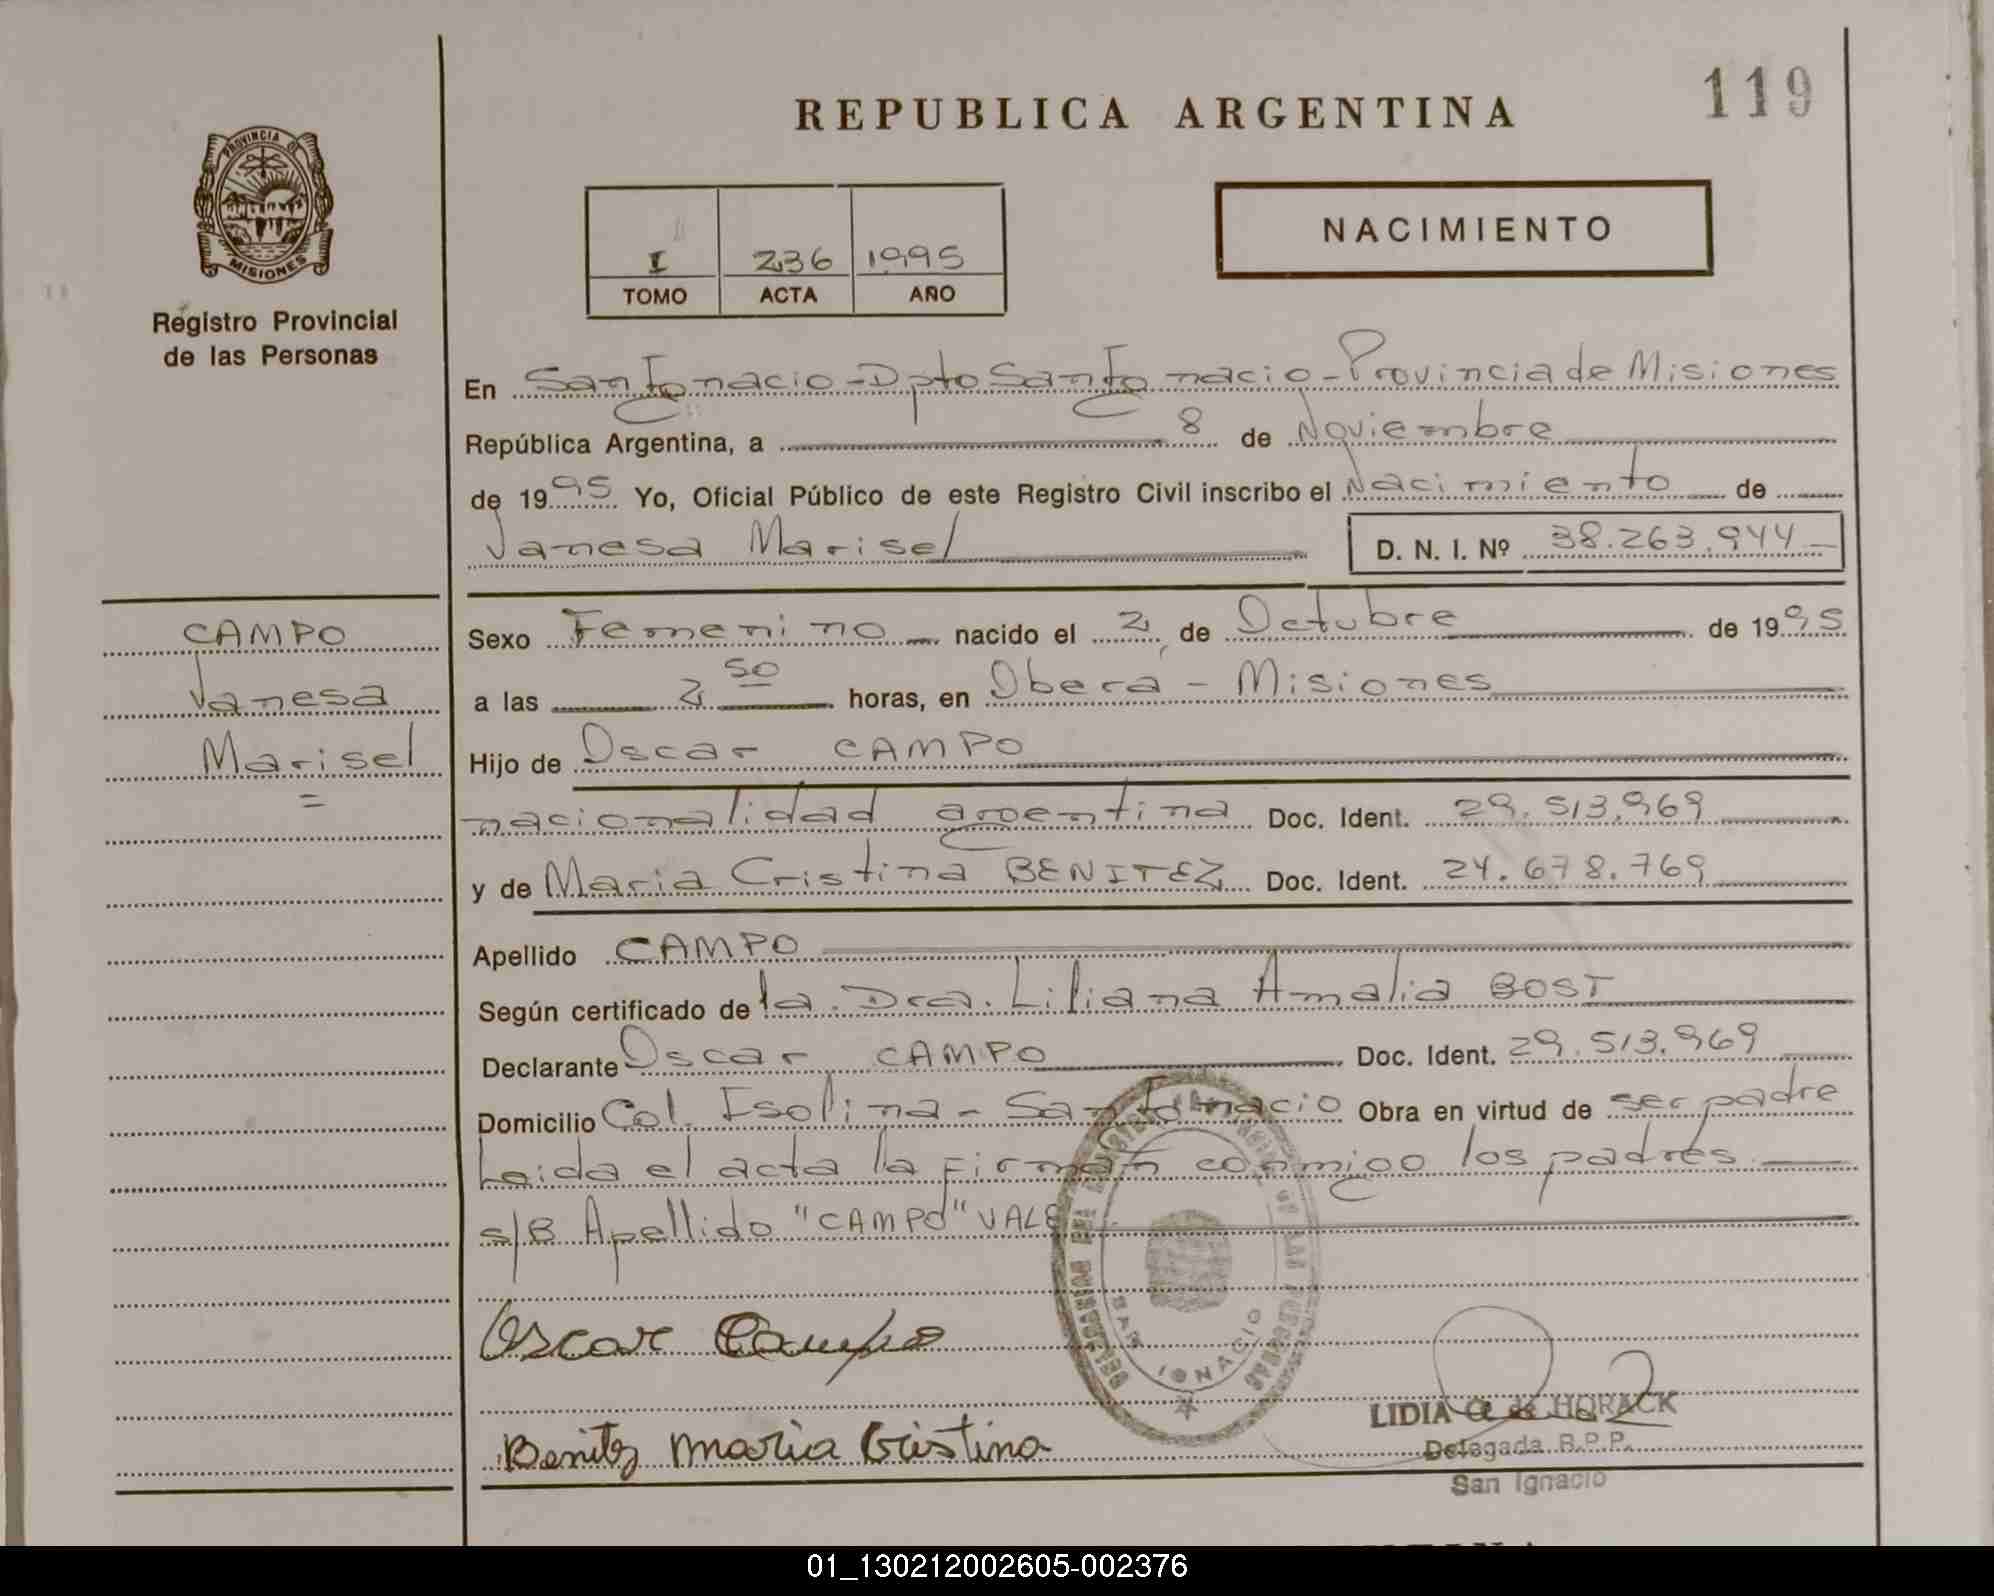 119
REPUBLICA ARGENTINA
PROVINCIA DE
MISIONES
Registro Provincial
de las Personas
I 236 1995
TOMO ACTA AÑO
NACIMIENTO
En San Ignacio - Dpto San Ignacio - Provincia de Misiones
República Argentina, a 8 de Noviembre
de 1995 Yo, Oficial Público de este Registro Civil inscribo el Nacimiento de
Vanesa Marisel D. N. I. Nº 38.263.944
CAMPO
Vanesa
Marisel
=
Sexo Femenino nacido el 2 de Octubre de 1995
a las 2 50 horas, en Oberá - Misiones
Hijo de Oscar CAMPO
nacionalidad argentina Doc. Ident. 29.513.969
y de Maria Cristina BENITEZ Doc. Ident. 24.678.769
Apellido CAMPO
Según certificado de la Dra. Liliana Amalia BOST
Declarante Oscar CAMPO Doc. Ident. 29.513.969
Domicilio Col. Isolina - San Ignacio Obra en virtud de ser padre
Leida el acta la firman conmigo los padres
s/B Apellido "CAMPO" VALE
Oscar Campo
SAN IGNACIO
LIDIA de HORACK
Benitez Maria Cristina
Delegada R.P.P.
San Ignacio
01_130212002605-002376